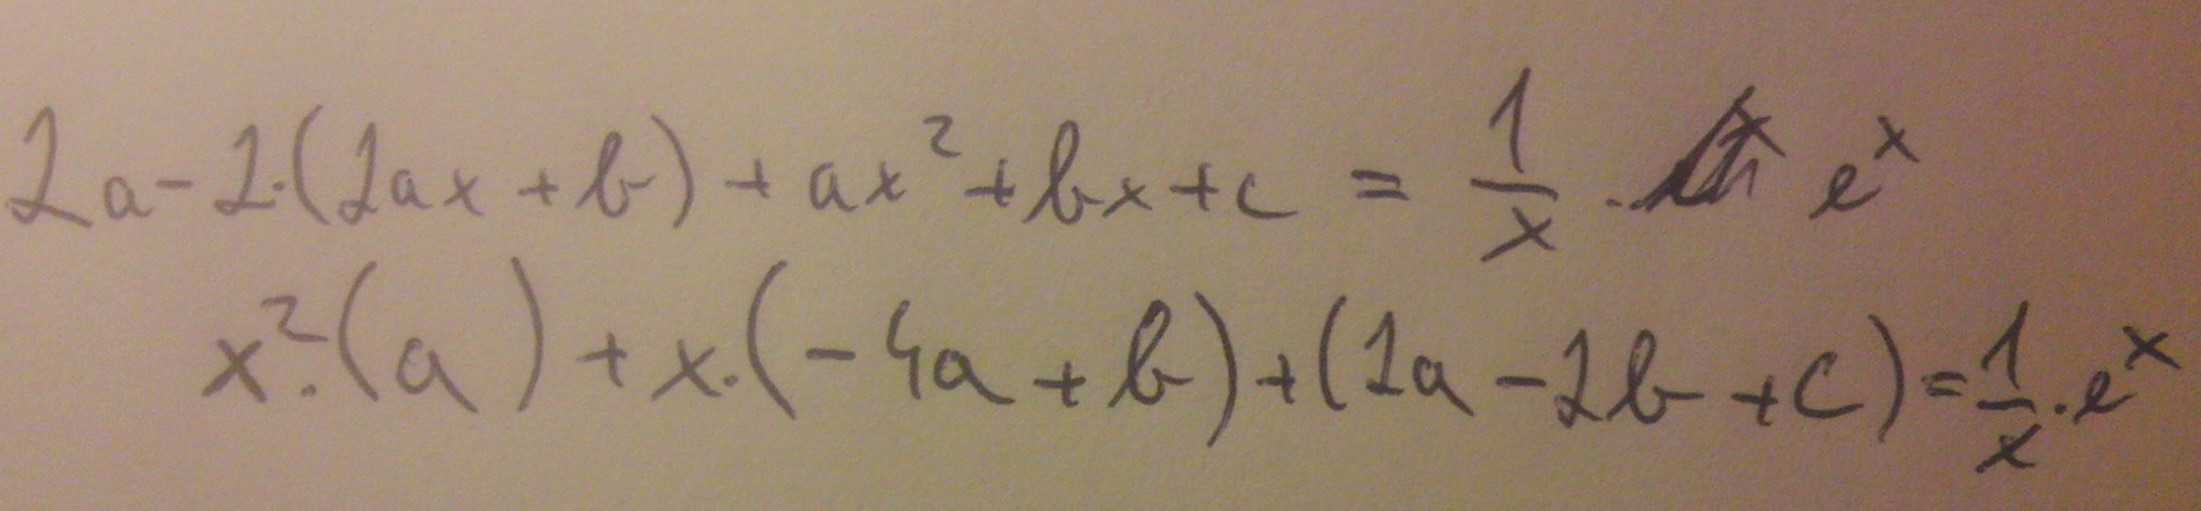 2a-2·(2ax+b)+ax²+bx+c = 1/x · eˣ
x²·(a)+x·(-4a+b)+(2a-2b+c)=1/x·eˣ